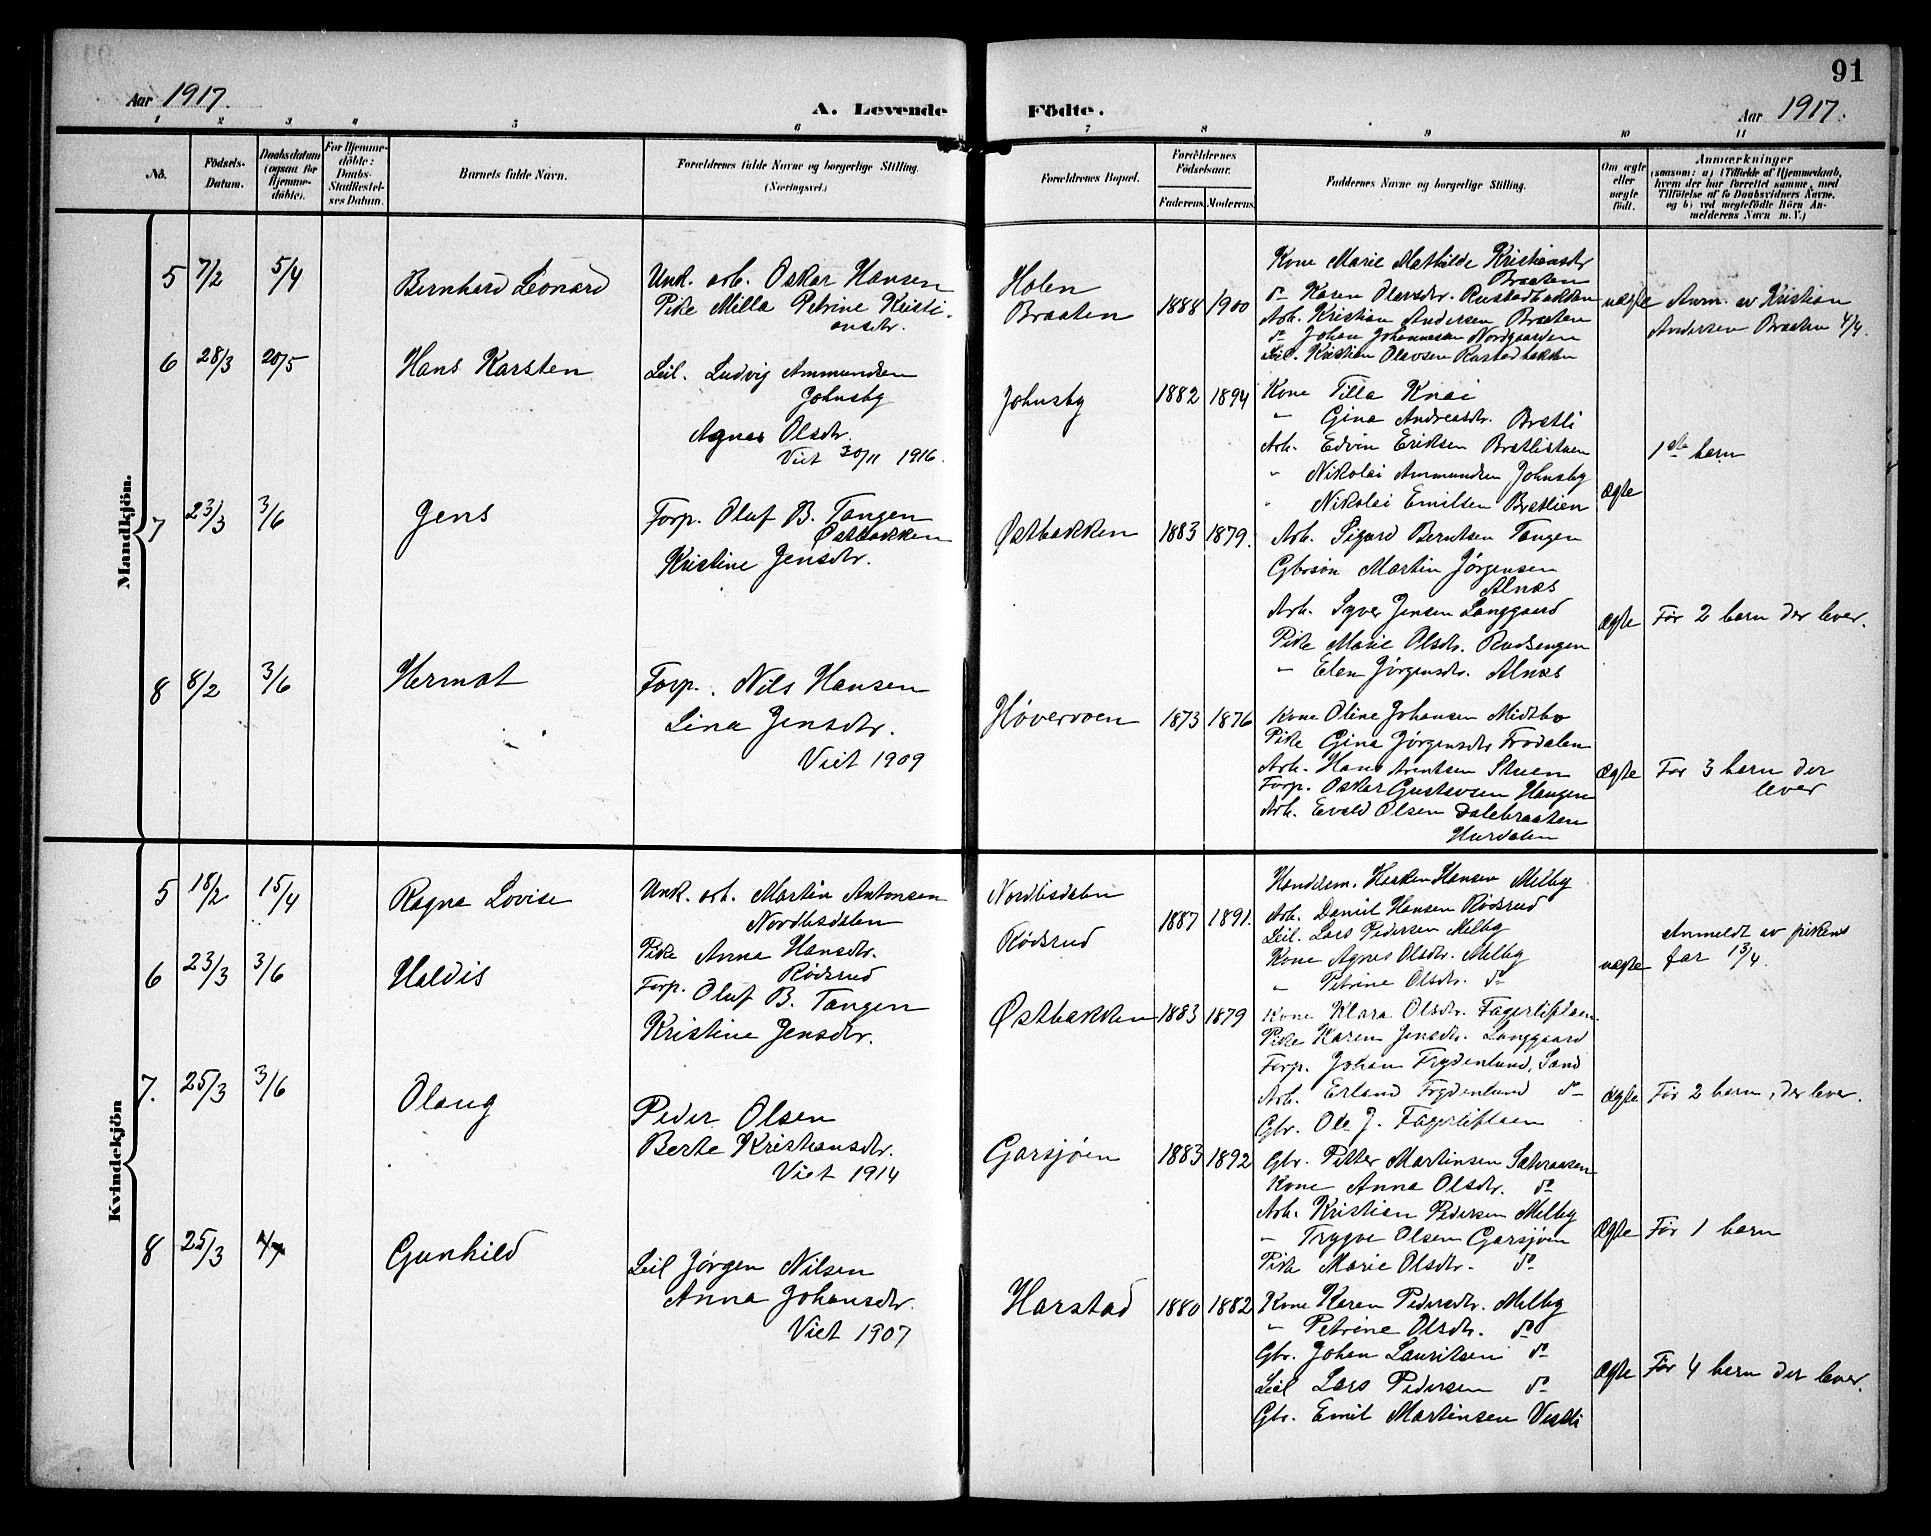 91
Aar 1917.
A. Levende
Födte.
Aar 1917.
1 2 3 4 5 6 7 8 9 10 11
No.
Födsels-
Datum.
Daabsdatum
(ogsaa for
Hjemme-
döbte).
For Hjemme-
döbte:
Daabs-
Stadfæstel-
ses Datum.
Barnets fulde Navn.
Forældrenes fulde Navne og borgerlige Stilling.
(Næringsvei.)
Forældrenes Bopæl.
Forældrenes
Födselsaar.
Faderens. Moderens.
Faddernes Navne og borgerlige Stilling.
Om ægte
eller
uægte
födt.
Anmærkninger
(saasom: a) i Tilfælde af Hjemmedaab,
hvem der har forrettet samme, med
Tilföielse af to Daabsvidners Navne,
og b) ved uegtefödte Börn An-
melderens Navn m. V.)
Mandkjön.
5 7/2 5/4 Bernhard Leonard
Unk. arb. Oskar Hansen
Pike Milla Petrine Kristi-
ansdtr.
Holen
Braaten
1888 1900
Kone Marie Mathilde Kristiansdtr
Braaten
do Karen Olavsdtr. Rustadbakken
Arb. Kristian Andersen Braaten
do Johan Johannesen Nordgaarden
Leil. Kristian Olavsen Rustadbakken
uægte
Anm. av Kristian
Andersen Braaten 4/4.
6 28/3 20/5 Hans Karsten
Leil. Ludvig Ammundsen
Johnsby
Agnes Olsdtr.
Viet 30/11 1916.
Johnsby
1882 1894
Kone Tilla Knai
" Gina Andreasdtr. Brætli
Arb. Edvin Eriksen Brætlistuen
" Nikolai Ammundsen Johnsby
" Nikolai Emilsen Brætlien
ægte
1ste barn
7 23/3 3/6 Jens
Forp. Oluf B. Tangen
Østbakken
Kristine Jensdtr.
Østbakken
1883 1879.
Arb. Sigurd Berntsen Tangen
Gbrsøn Martin Jørgensen
Alnæs
Arb. Syver Jensen Langgaard
Pike Marie Olsdtr. Rudsengen
" Elen Jørgensdtr. Alnæs
ægte
Før 2 barn der lever.
8 8/2 3/6 Hermot
Forp. Nils Hansen
Lina Jensdtr.
Viet 1909
Høvervoen
1873 1876
Kone Oline Johansen Midtbo
Pike Gina Jørgensdtr Frodalen
Arb. Hans Arentsen Stuen
Forp. Oskar Gustavsen Haugen
Arb. Evald Olsen Dalebraaten
Hurdalen
ægte
Før 3 barn der
lever
Kvindekjön
5 18/2 15/4 Ragna Lovise
Unk. arb. Martin Antonsen
Nordlisdalen
Pike Anna Hansdtr.
Rødsrud
Nordlisdalen
Rødsrud
1887 1891.
Handelsm. Haaken Hansen Milby
Arb. Daniel Hansen Rødsrud
Leil. Lars Pedersen Melby
Kone Agnes Olsdtr. Melby
" Petrine Olsdtr. do
uægte
Anmeldt av pikens
far 13/4.
6 23/3 3/6 Haldis
Forp. Oluf B. Tangen
Kristine Jensdtr.
Østbakken
1883 1879
Kone Klara Olsdtr. Fagerliplaen
Pike Karen Jensdtr. Langgaard
Forp. Johan Frydenlund, Sand
Arb. Erland Frydenlund do
Gbr. Ole J. Fagerliplaen
ægte
Før 2 barn, der lever.
7. 25/3 3/6 Olaug
Peder Olsen
Berte Kristiansdtr.
Viet 1914
Garsjøen
1883 1892
Gbr. Petter Martinsen Sætraasen
Kone Anna Olsdtr. do
Arb. Kristian Pedersen Milby
" Trygve Olsen Garsjøen
Pike Marie Olsdtr. do
Ægte
Før 1 barn
8 25/3 Gunhild
Leil Jørgen Nilsen
Anna Johansdtr.
Viet 1907
Harstad
1880 1882
Kone Karen Pedersdtr. Milby
" Petrine Olsdtr. do
Gbr. Johan Lauritsen do
Leil Lars Pedersen do
Gbr. Emil Martinsen Vestli
ægte
Før 4 barn der lever.